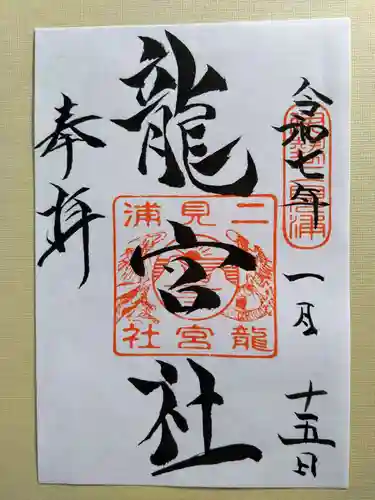 令和七年
一月
十五日
龍宮社
奉拝
二見浦
龍宮社